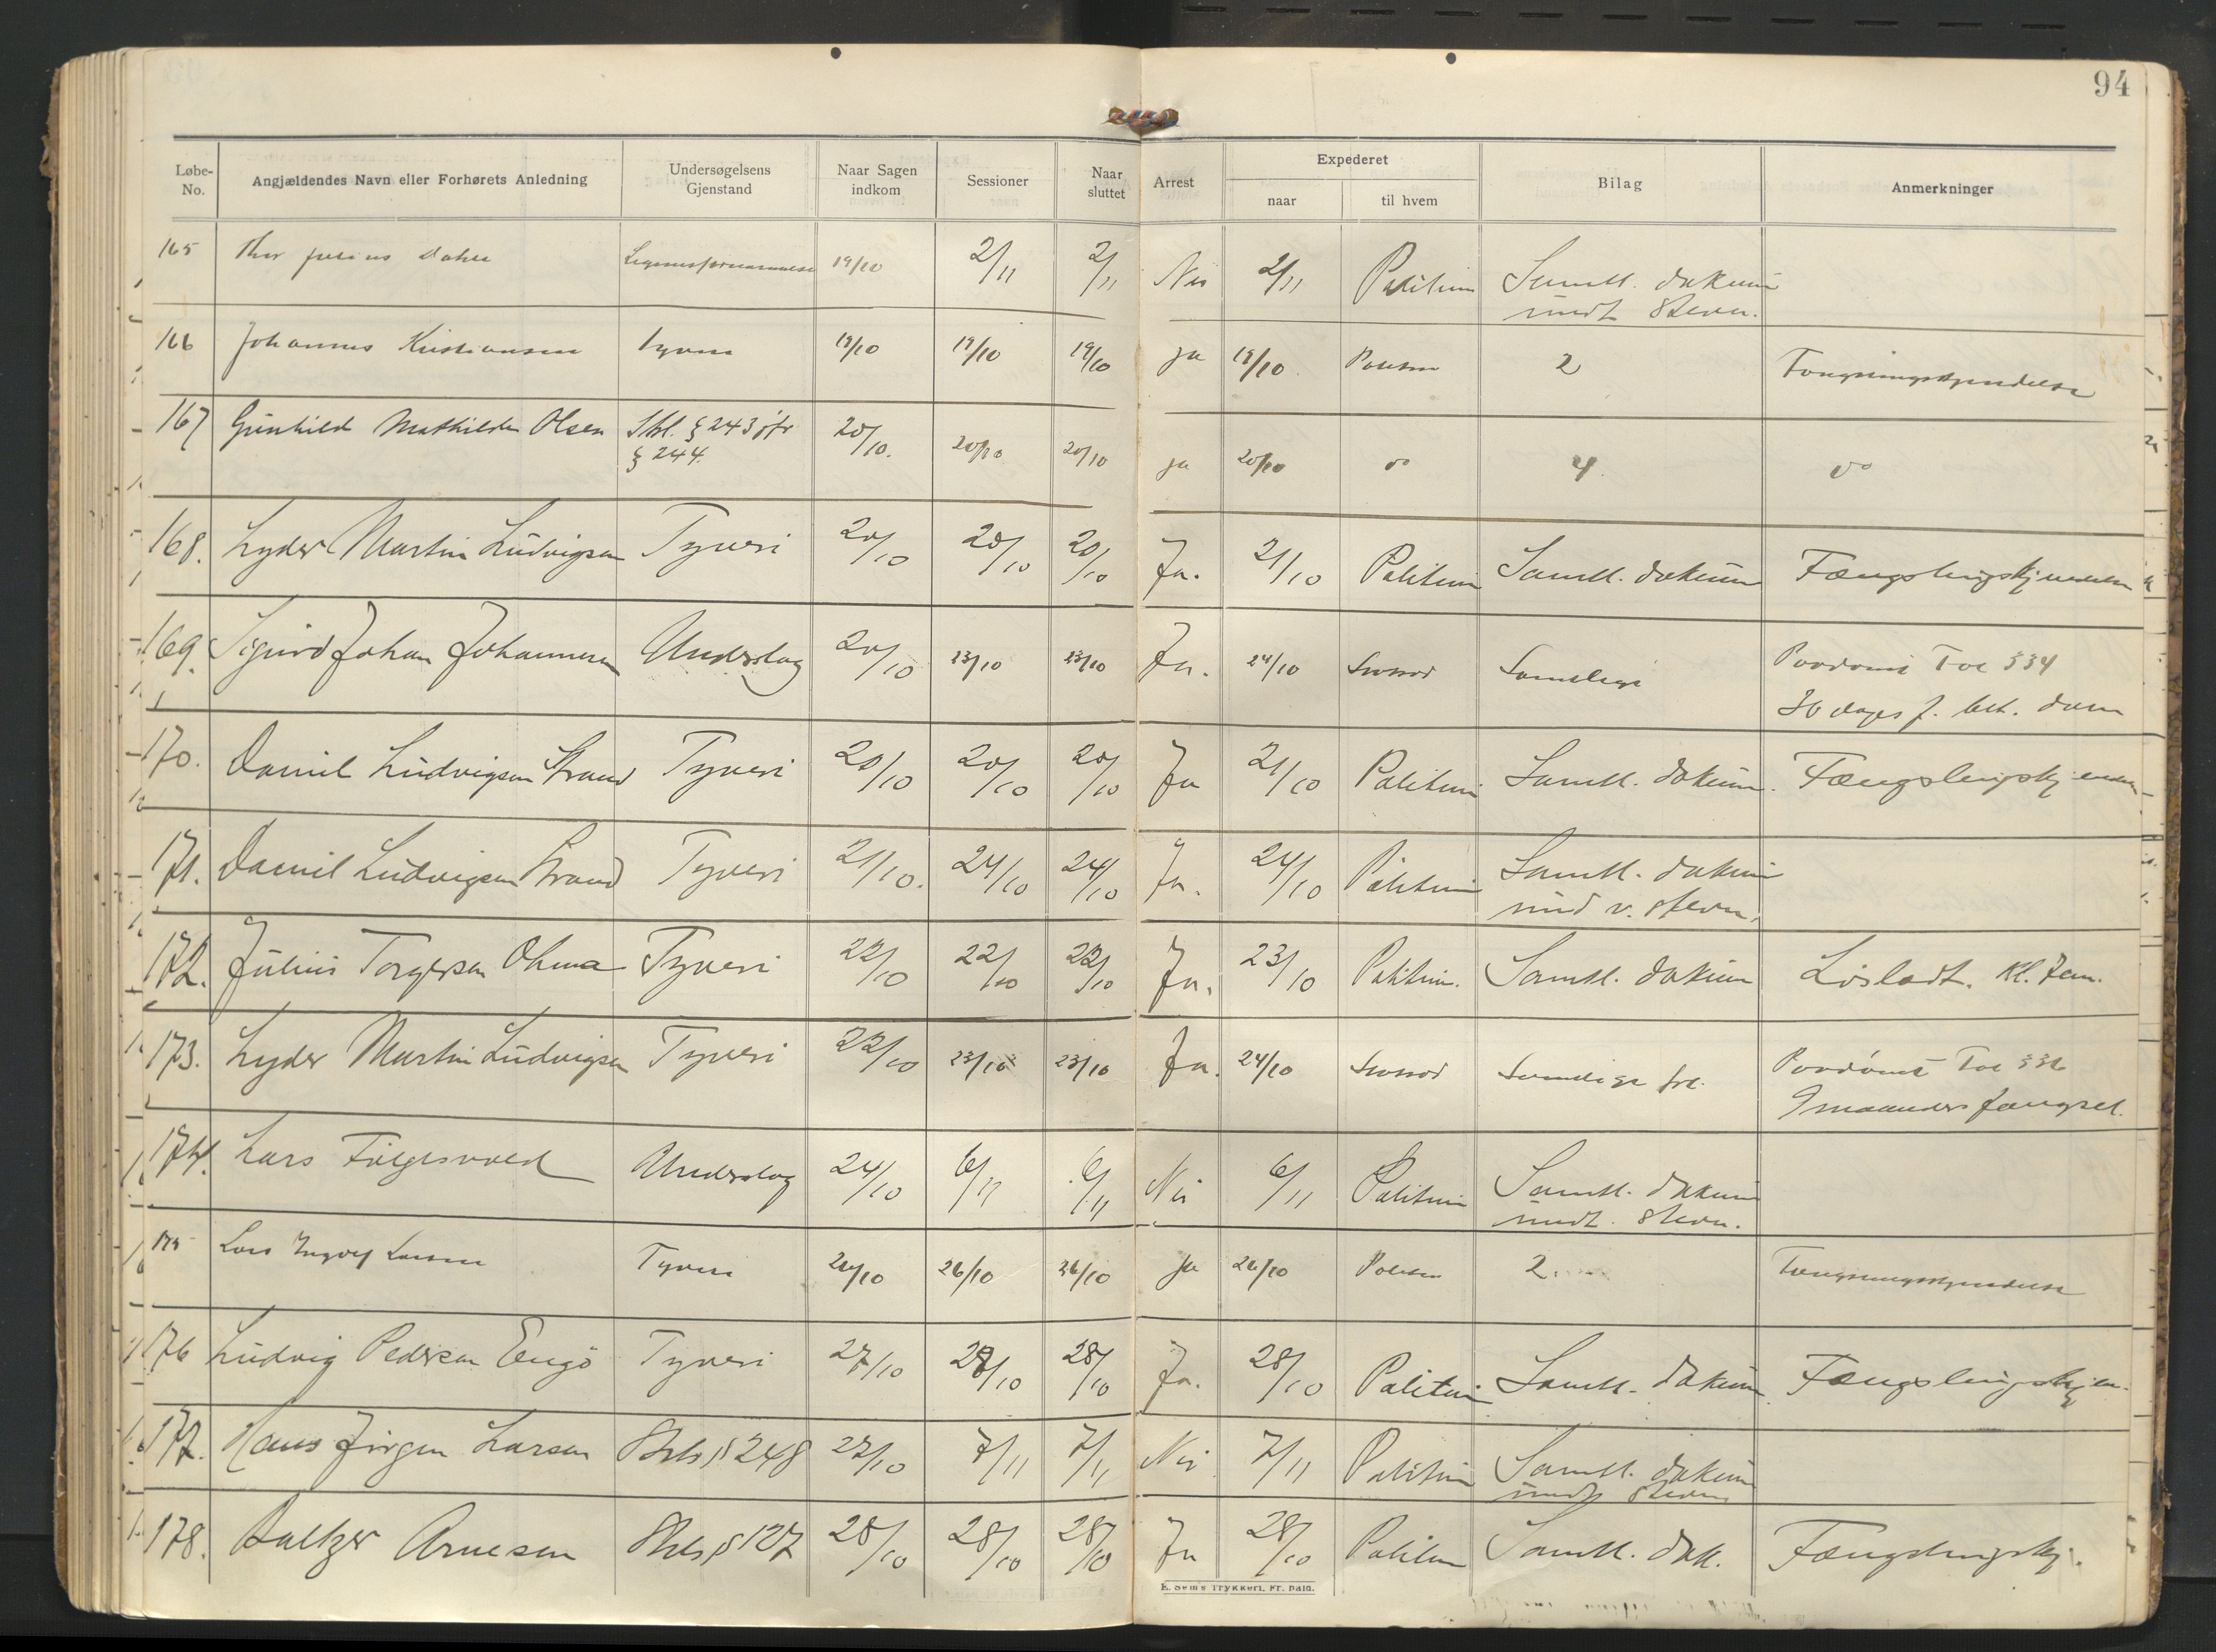 94
Løbe-No. Angjældendes Navn eller Forhørets Anledning Undersøgelsens Gjenstand Naar Sagen indkom Sessioner Naar sluttet Arrest Expederet naar til hvem Bilag Anmerkninger
165 Thor Julius Dahle 19/10 2/11 2/11 Nei 2/11 Politiet Samtl. dokum
undt. stevn.
166 Johannes Kristiansen Tyveri 19/10 19/10 19/10 ja 19/10 Politiet 2 Fængslingskjendelse
167 Gunhild Mathilde Olsen Strl. § 243 jfr 20/10. 20/10 20/10 ja 20/10 do 4 do
§ 244.
168. Lyder Martin Ludvigsen Tyveri 20/10 20/10 20/10 Ja. 21/10 Politiet Samtl. dokum Fængslingskjendelse
169. Sigurd Johan Johannesen Underslag 20/10 23/10 23/10 Ja. 24/10 Samtlige Paadømt
30 dages f. bet. dom
170. Daniel Ludvigsen Strand Tyveri 20/10 20/10 20/10 Ja 21/10 Politiet Samtl. dokum. Fængslingskjendel
171. Daniel Ludvigsen Strand Tyveri 21/10. 24/10 24/10 Ja. 24/10 Politiet Samtl. dokum
und v. stevn.
172. Julius Torgersen Tyveri 22/10 22/10 22/10 Ja. 23/10 Politiet. Samtl. dokum Løsladt.
173. Lyder Martin Ludvigsen Tyveri 22/10 23/10 23/10 Ja. 24/10 Samtlige Paadømt
9 maaneders fængsel.
174. Lars Underslag 24/10 6/11 6/11 Nei 6/11 Politiet Samtl. dokum
undt. stevn.
175 Lars Ingolf Larsen Tyveri 26/10 26/10 26/10 ja 26/10 Politiet 2. Fængslingskjendelse
176 Ludvig Pedersen Engø Tyveri 27/10 28/10 28/10 Ja. 28/10 Politiet Samtl. dokum Fængslingskjen.
177. Hans Jørgen Larsen Strls § 248 27/10 7/11 7/11 Nei 7/11 Politiet Samtl. dokum
undt stevn
178. Baltzer Arnesen Strls § 127 28/10 28/10 28/10 Ja 28/10 Politiet Samtl. dok. Fængslingskj.
E. Sem's Trykkeri, Fr.hald.